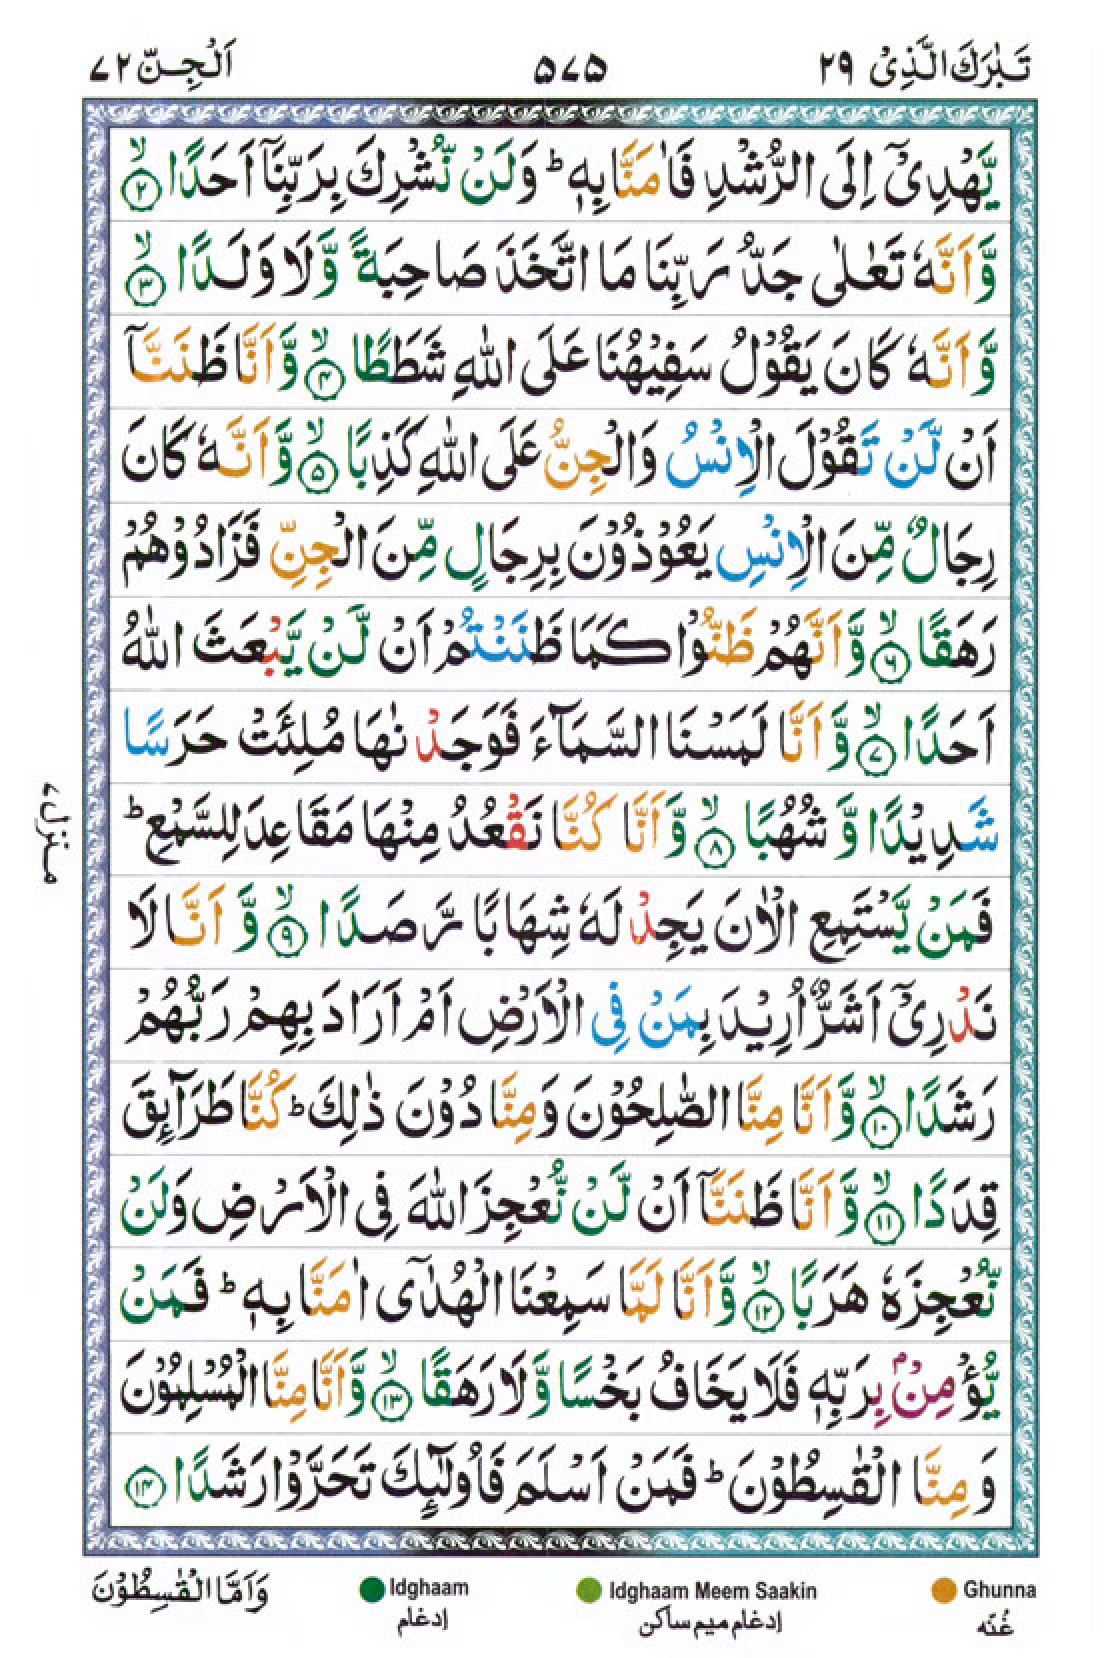 تَبٰرَكَ الَّذِیْ ۲۹
۵۷۵
اَلْجِنّ ۷۲
یَّهْدِیْۤ اِلَی الرُّشْدِ فَاٰمَنَّا بِهٖ ؕ وَلَنْ نُّشْرِكَ بِرَبِّنَاۤ اَحَدًا ۙ﴿۲﴾
وَّاَنَّهٗ تَعٰلٰی جَدُّ رَبِّنَا مَا اتَّخَذَ صَاحِبَةً وَّلَا وَلَدًا ۙ﴿۳﴾
وَّاَنَّهٗ كَانَ یَقُوْلُ سَفِیْهُنَا عَلَی اللّٰهِ شَطَطًا ۙ﴿۴﴾ وَّاَنَّا ظَنَنَّاۤ
اَنْ لَّنْ تَقُوْلَ الْاِنْسُ وَالْجِنُّ عَلَی اللّٰهِ كَذِبًا ۙ﴿۵﴾ وَّاَنَّهٗ كَانَ
رِجَالٌ مِّنَ الْاِنْسِ یَعُوْذُوْنَ بِرِجَالٍ مِّنَ الْجِنِّ فَزَادُوْهُمْ
رَهَقًا ۙ﴿۶﴾ وَّاَنَّهُمْ ظَنُّوْا كَمَا ظَنَنْتُمْ اَنْ لَّنْ یَّبْعَثَ اللّٰهُ
اَحَدًا ۙ﴿۷﴾ وَّاَنَّا لَمَسْنَا السَّمَآءَ فَوَجَدْنٰهَا مُلِئَتْ حَرَسًا
شَدِیْدًا وَّشُهُبًا ۙ﴿۸﴾ وَّاَنَّا كُنَّا نَقْعُدُ مِنْهَا مَقَاعِدَ لِلسَّمْعِ ؕ
فَمَنْ یَّسْتَمِعِ الْاٰنَ یَجِدْ لَهٗ شِهَابًا رَّصَدًا ۙ﴿۹﴾ وَّاَنَّا لَا
نَدْرِیْۤ اَشَرٌّ اُرِیْدَ بِمَنْ فِی الْاَرْضِ اَمْ اَرَادَ بِهِمْ رَبُّهُمْ
رَشَدًا ۙ﴿۱۰﴾ وَّاَنَّا مِنَّا الصّٰلِحُوْنَ وَمِنَّا دُوْنَ ذٰلِكَ ؕ كُنَّا طَرَآئِقَ
قِدَدًا ۙ﴿۱۱﴾ وَّاَنَّا ظَنَنَّاۤ اَنْ لَّنْ نُّعْجِزَ اللّٰهَ فِی الْاَرْضِ وَلَنْ
نُّعْجِزَهٗ هَرَبًا ۙ﴿۱۲﴾ وَّاَنَّا لَمَّا سَمِعْنَا الْهُدٰۤی اٰمَنَّا بِهٖ ؕ فَمَنْ
یُّؤْمِنْۢ بِرَبِّهٖ فَلَا یَخَافُ بَخْسًا وَّلَا رَهَقًا ۙ﴿۱۳﴾ وَّاَنَّا مِنَّا الْمُسْلِمُوْنَ
وَمِنَّا الْقٰسِطُوْنَ ؕ فَمَنْ اَسْلَمَ فَاُولٰٓئِكَ تَحَرَّوْا رَشَدًا ﴿۱۴﴾
منزل ۷
وَاَمَّا الْقٰسِطُوْنَ
Idghaam
إدغام
Idghaam Meem Saakin
إدغام ميم ساكن
Ghunna
غُنّه